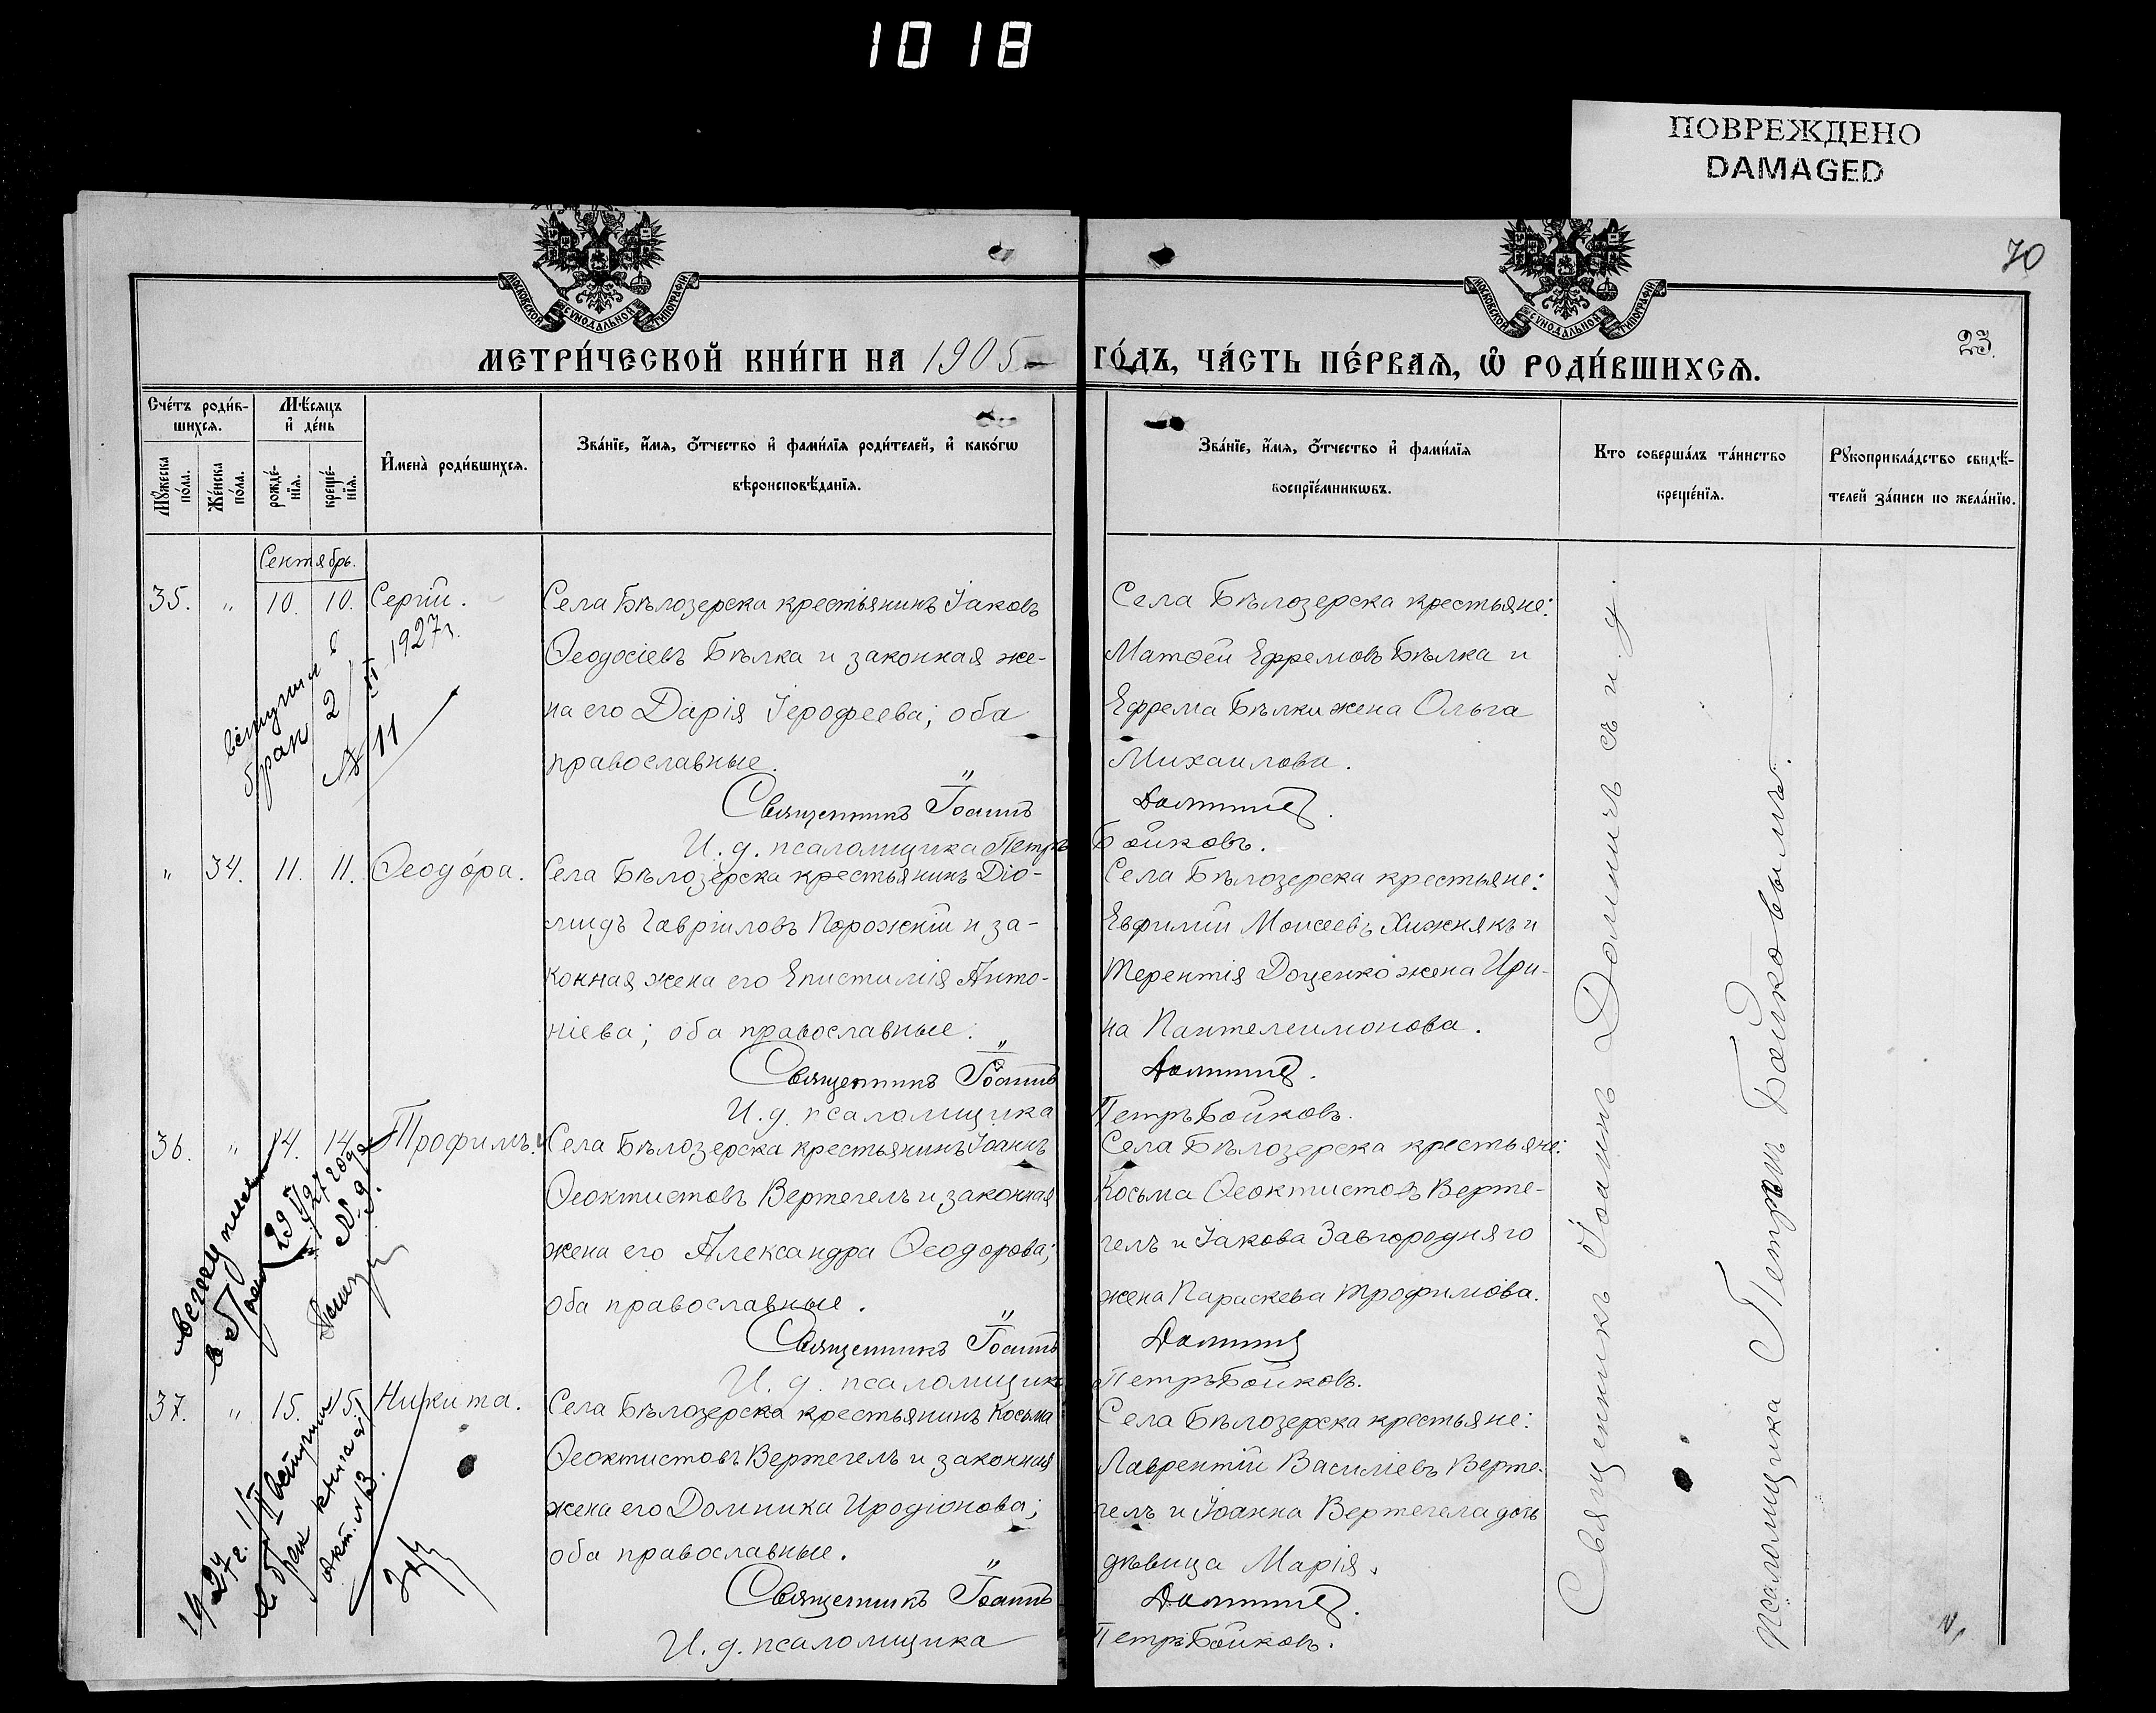 1018
ПОВРЕЖДЕНО
DAMAGED
70
МОСКОВСКОЙ СѴНОДАЛЬНОЙ ТИПОГРАФІИ
МОСКОВСКОЙ СѴНОДАЛЬНОЙ ТИПОГРАФІИ
23.
МЕТРИ́ЧЕСКОЙ КНИ́ГИ НА 1905
ГО́ДЪ, ЧА́СТЬ ПЕ́РВАѦ, Ѡ҆ РОДИ́ВШИХСѦ.
Сче́тъ роди́в-
шихсѧ.
Мꙋ́жеска по́ла.
Же́нска по́ла.
Мѣ́сѧцъ
и҆ де́нь
рожде́-
нїѧ.
креще́-
нїѧ.
И҆мена̀ роди́вшихсѧ.
Зва́нїе, и҆́мѧ, ѻ҆́тчество и҆ фами́лїѧ роди́телей, и҆ како́гѡ
вѣроисповѣ́данїѧ.
Зва́нїе, и҆́мѧ, ѻ҆́тчество и҆ фами́лїѧ
воспрїе́мникѡвъ.
Кто соверша́лъ та́инство
креще́нїѧ.
Рꙋкоприкла́дство свидѣ́-
телей за́писи по жела́нїю.
Сентябрь.
35. " 10. 10. Сергій.
Села Бѣлозерска крестьянинъ Іаковъ
Ѳеодосіевъ Бѣлка и законная же-
на его Дарія Іерофеева; оба
православные.
Священникъ Іоаннъ
И. д. псаломщика Петръ
Села Бѣлозерска крестьяне:
Матѳей Ефремовъ Бѣлка и
Ефрема Бѣлки жена Ольга
Михаилова.
Доминич.
Бойковъ.
вступил в
брак 2/II 1927 г.
№ 11
" 34. 11. 11. Ѳеодо́ра.
Села Бѣлозерска крестьянинъ Діо-
мидъ Гавріиловъ Порожній и за-
конная жена его Епистимія Анто-
ніева; оба православные.
Священникъ Іоаннъ
И. д. псаломщика
Села Бѣлозерска крестьяне:
Евфимій Моисеевъ Хижнякъ и
Терентія Доценко жена Ири-
на Пантелеимонова.
Доминич.
Петръ Бойковъ.
36. " 14. 14. Трофимъ.
Села Бѣлозерска крестьянинъ Іоаннъ
Ѳеоктистовъ Вертегелъ и законная
жена его Александра Ѳеодорова;
оба православные.
Священникъ Іоаннъ
И. д. псаломщика
Села Бѣлозерска крестьяне:
Косьма Ѳеоктистовъ Верте-
гелъ и Іакова Завгородняго
жена Параскева Трофимова.
Доминич
Петръ Бойковъ.
в брак
1927 года
№ 9
37. " 15. 15. Никита.
Села Бѣлозерска крестьянинъ Косьма
Ѳеоктистовъ Вертегелъ и законная
жена его Домника Иродіонова;
оба православные.
Священникъ Іоаннъ
И. д. псаломщика
Села Бѣлозерска крестьяне:
Лаврентій Василіевъ Верте-
гелъ и Іоанна Вертегела дочь
дѣвица Марія.
Доминич.
Петръ Бойковъ.
1927 г. вступил
в брак книга
акт. №13.
Священникъ Іоаннъ Доминичъ съ и. д.
псаломщика Петромъ Бойковымъ.